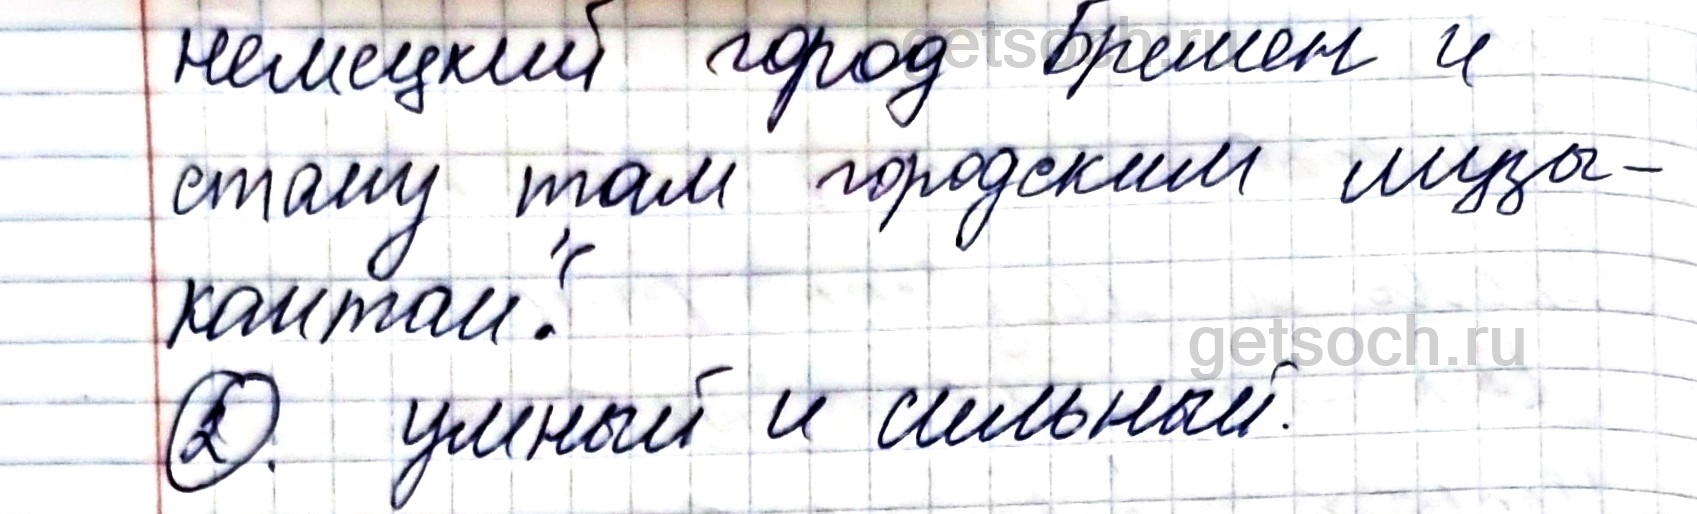 немецкий город Бремен и
стану там городским музы-
кантом."
2. умный и сильный.
getsoch.ru
getsoch.ru